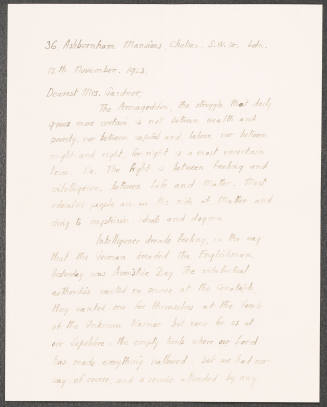 36, Ashburnham Mansions, Chelsea. S.W.10. Ldn.
12th November. 1923.
Dearest Mrs. Gardner,
The Armageddon, the struggle that daily
grows more certain is not between wealth and
poverty, nor between capital and labour, nor between
might and right, for right is a most uncertain
term. No. The fight is between feeling and
intelligence, between Life and Matter. Most
people are on the side of Matter and
cling to ideals and dogma.
Intelligence dreads feeling, in the way
that the German dreaded the Englishman.
Yesterday was Armistice Day. The
authorities wanted no service at the Cenotaph.
They wanted one for themselves at the Tomb
of the Unknown Warrior but none for us at
our Sepulchre - the empty tomb where our Lord
has made everything hallowed. but we had our
way of course, and a service attended by any